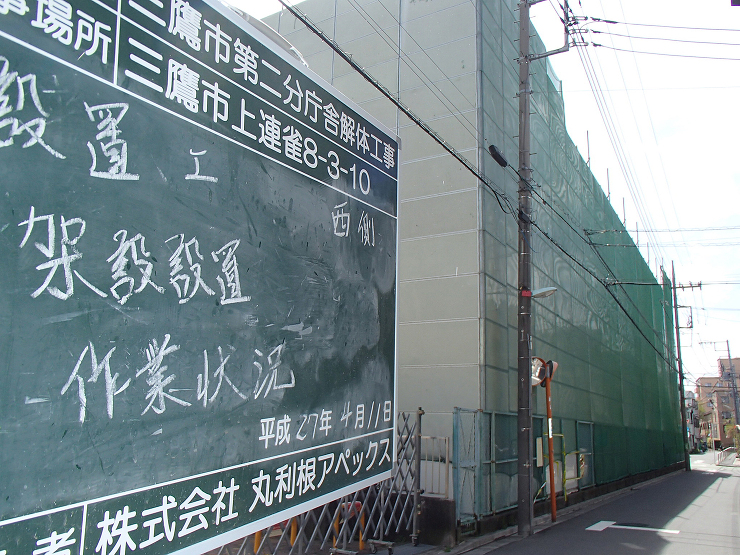 事場所
三鷹市第二分庁舎解体工事
三鷹市上連雀8-3-10
設置工
西側
架設設置
作業状況
平成27年4月11日
者 株式会社 丸利根アペックス